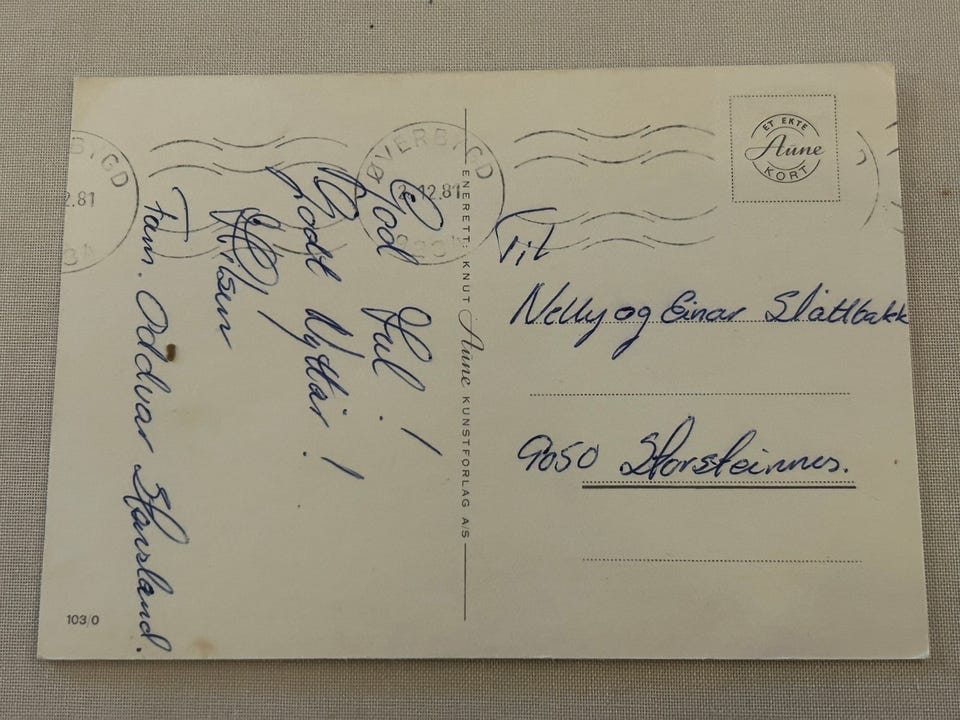 God Jul!
Godt Nyttår!
Hilsen
Fam. Oddvar Stavsland.
103/0
ENERETT: KNUT Aune KUNSTFORLAG A/S
ØVERBYGD
12.81
BYGD
2.81
ET EKTE
Aune
KORT
Til
Nelly og Einar Slåttbakk
9050 Storsteinnes.